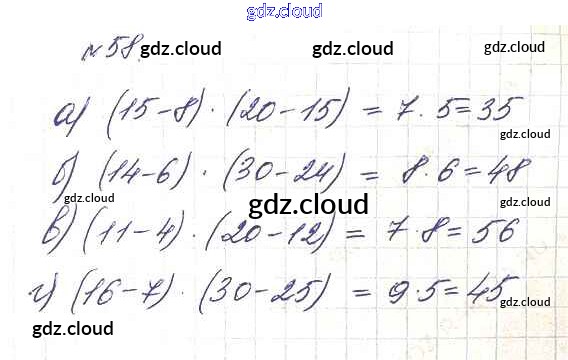 gdz.cloud
№58. gdz.cloud gdz.cloud
gdz.cloud
а) (15-8) · (20-15) = 7 · 5 = 35
gdz.cloud
б) (14-6) · (30-24) = 8 · 6 = 48
gdz.cloud gdz.cloud gdz.cloud
в) (11-4) · (20-12) = 7 · 8 = 56
gdz.cloud
г) (16-7) · (30-25) = 9 · 5 = 45
gdz.cloud
gdz.cloud gdz.cloud